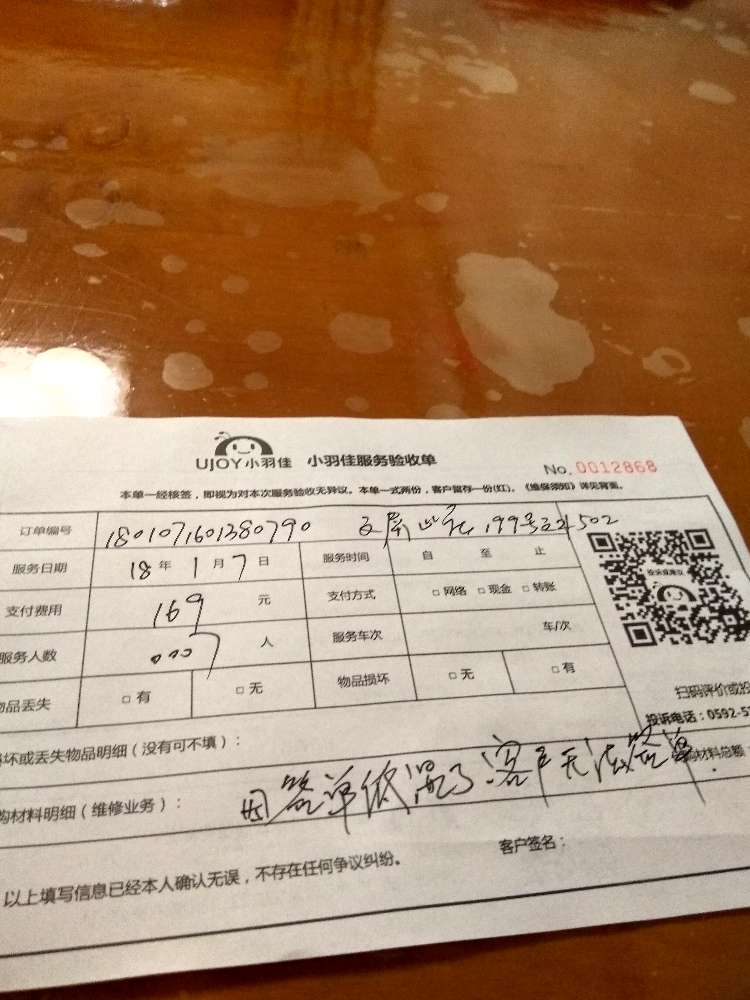 UJOY小羽佳 小羽佳服务验收单 No. 0012868
本单一经核签，即视为对本次服务验收无异议。本单一式两份，客户留存一份(红)。《维保须知》详见背面。
订单编号 1801071601380790 199号 502
服务日期 18 年 1 月 7 日 服务时间 自 至 止
支付费用 169 元 支付方式 □ 网络 □ 现金 □ 转账
服务人数 人 服务车次 车/次
品丢失 □ 有 □ 无 物品损坏 □ 无 □ 有
投诉或建议
扫码评价或投
投诉电话：0592-57
坏或丢失物品明细（没有可不填）：
购材料明细（维修业务）： 因签单纸湿了客户无法签单. 材料总额
以上填写信息已经本人确认无误，不存在任何争议纠纷。 客户签名：